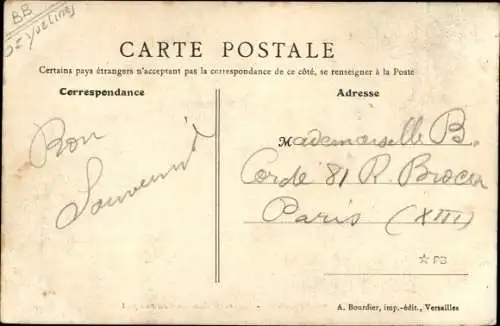 BB
Yvelines
CARTE POSTALE
Certains pays étrangers n'acceptent pas la correspondance de ce côté, se renseigner à la Poste
Correspondance
Adresse
Bon
Souvenir
Mademoiselle B.
Corde 81 R. Broca
Paris (XIII)
☆ PB
A. Bourdier, imp.-édit., Versailles